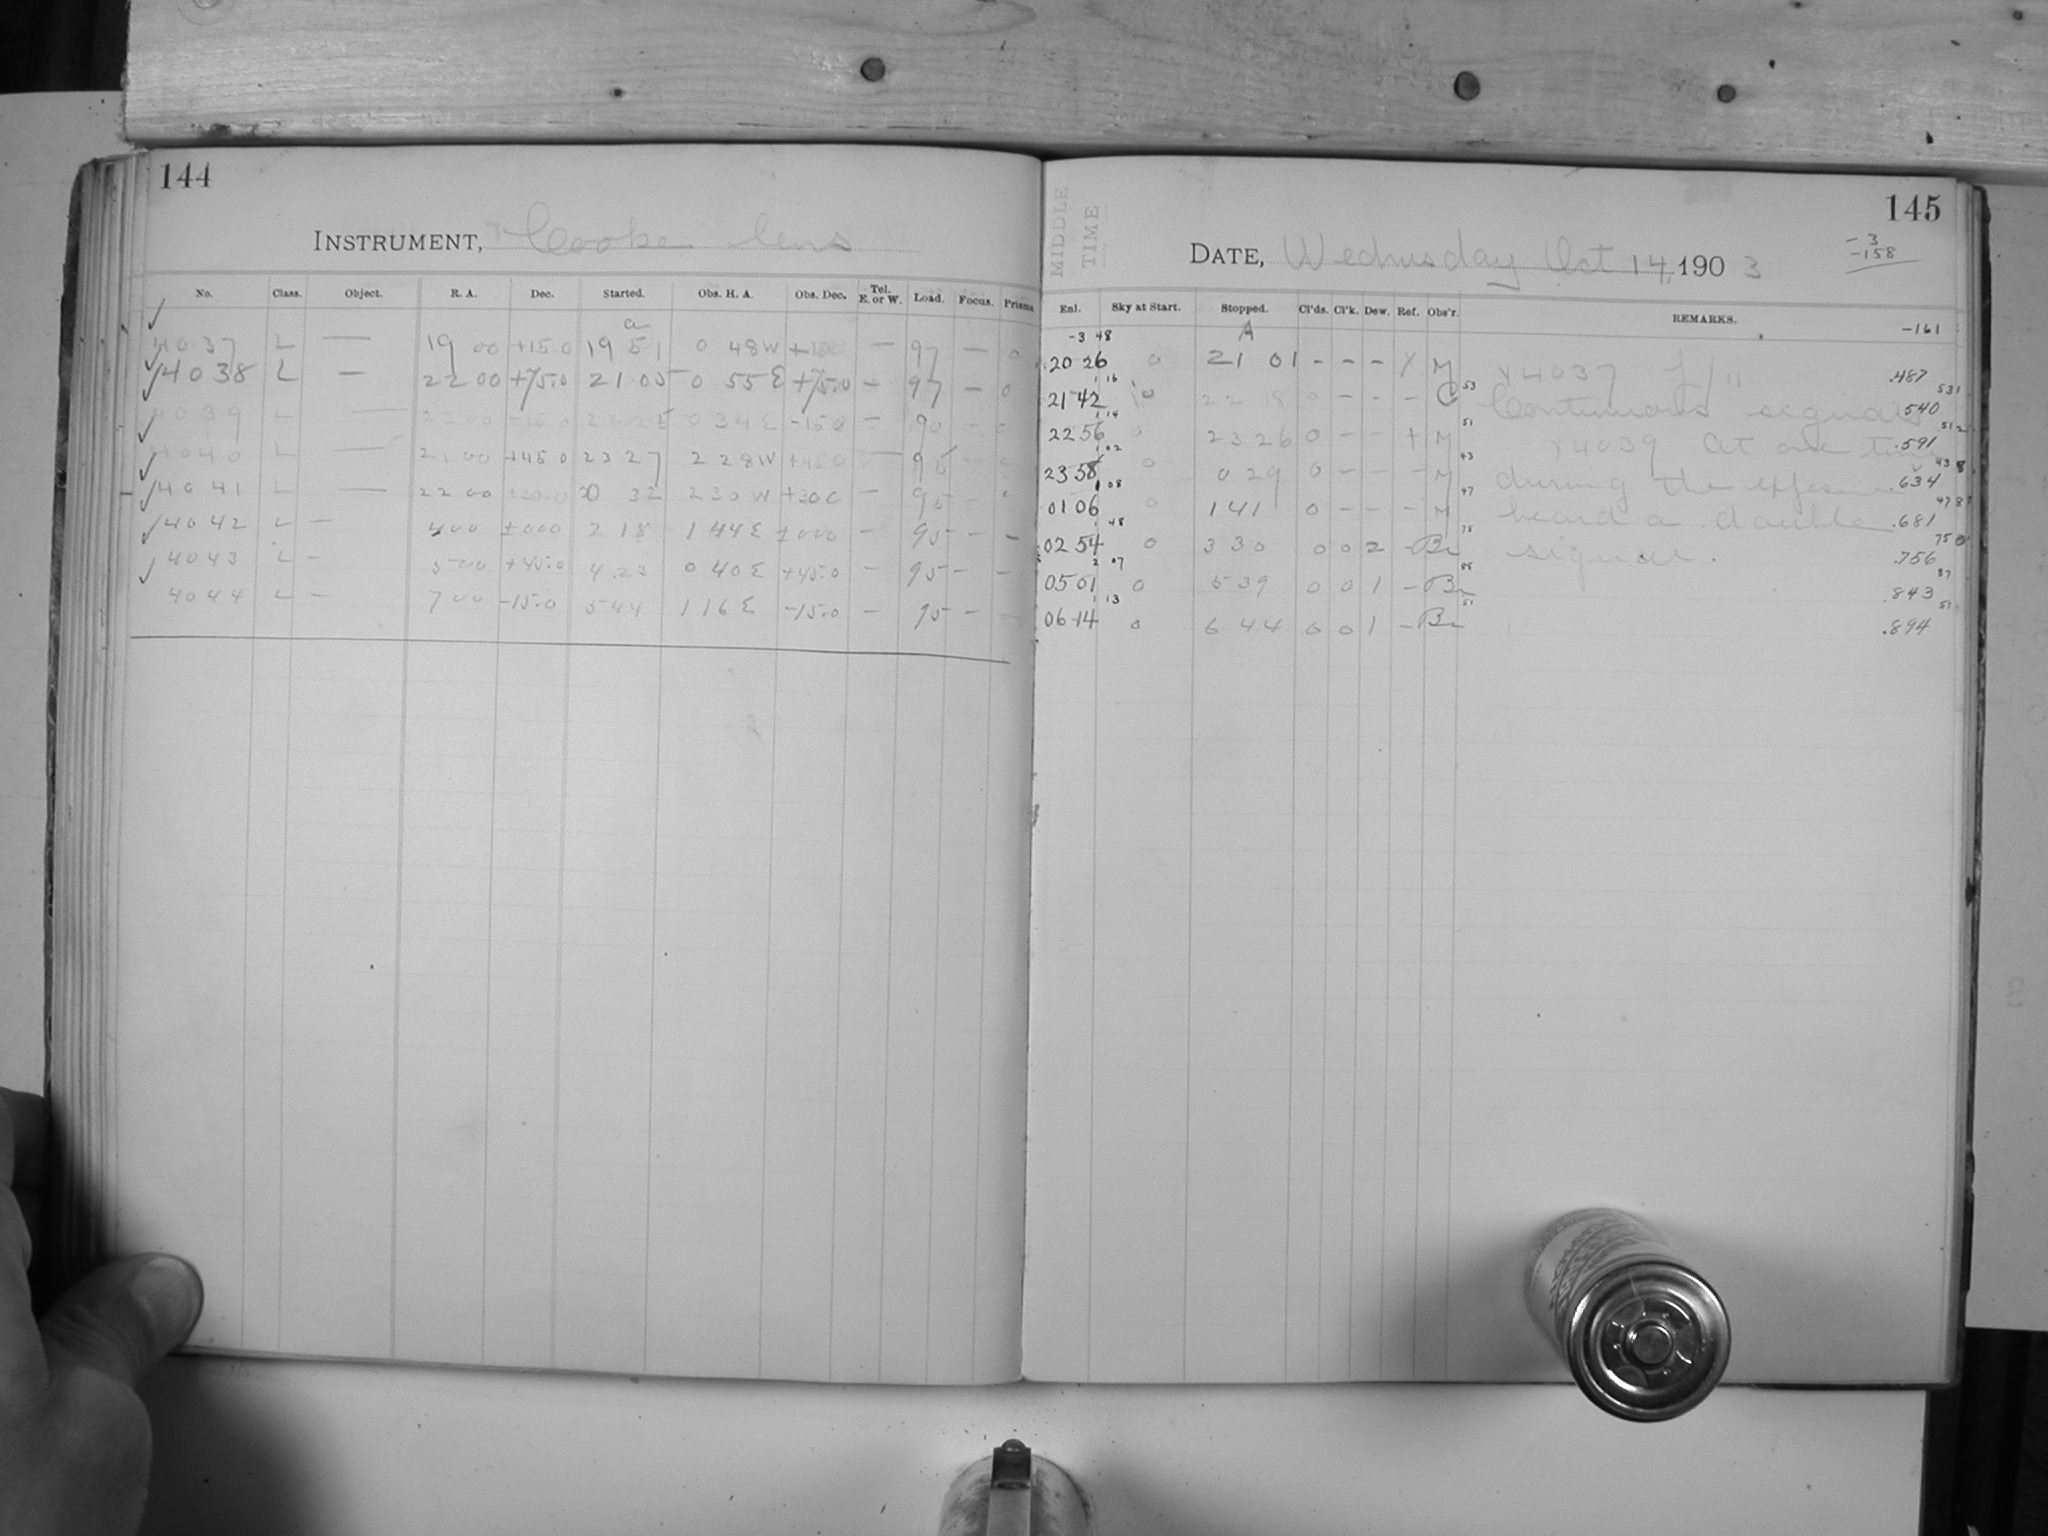 144
INSTRUMENT, Cooke lens
No. Class. Object. R. A. Dec. Started. Obs. H. A. Obs. Dec. Tel. E. or W. Load. Focus. Prisms.
a
4037 L — 19 00 +15.0 19 51 0 48 W +15.0 — 97 — 0
4038 L — 22 00 +75.0 21 05 0 55 E +75.0 — 97 — 0
4039 L — 23 00 -15.0 0 34 E -15.0 — 90 — 0
4040 L — 21 00 +45.0 23 27 2 28 W +45.0 — 95 —
4041 L — 22 00 +30.0 0 32 2 30 W +30.0 — 95 —
4042 L — 4 00 ±000 2 18 1 44 E ±000 — 95 — —
4043 L — 5 00 +45.0 4.23 0 40 E +45.0 — 95 — —
4044 L — 7 00 -15.0 5 44 1 16 E -15.0 — 95 — —
MIDDLE TIME
145
DATE, Wednesday Oct 14, 1903
-3
-158
Enl. Sky at Start. Stopped. Cl'ds. Cl'k. Dew. Ref. Obs'r. REMARKS.
-3 48 A -161
20 26 0 21 01 - - - X M X4037 .487
1 16 53 531
21 42 0 22 18 0 - - - C Continuous signals .540
1 14 51 512
22 56 0 23 26 0 - - + M X4039 At one time .591
1 02 43 438
23 58 0 0 29 0 - - - M during the exposure .634
1 08 47 478
01 06 0 1 41 0 - - - M heard a double .681
1 48 75 750
02 54 0 3 30 0 0 2 - Br signal. .756
2 07 88 87
05 01 0 5 39 0 0 1 - Br .843
1 13 51 51
06 14 0 6 44 0 0 1 - Br .894